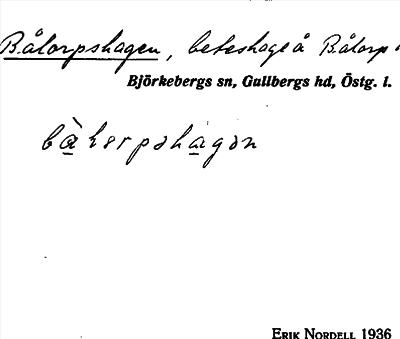 Båtorpshagen, beteshage å Båtorp.
Björkebergs sn, Gullbergs hd, Östg. l.
bà̱ƚɜrpshа̱gən
ERIK NORDELL 1936